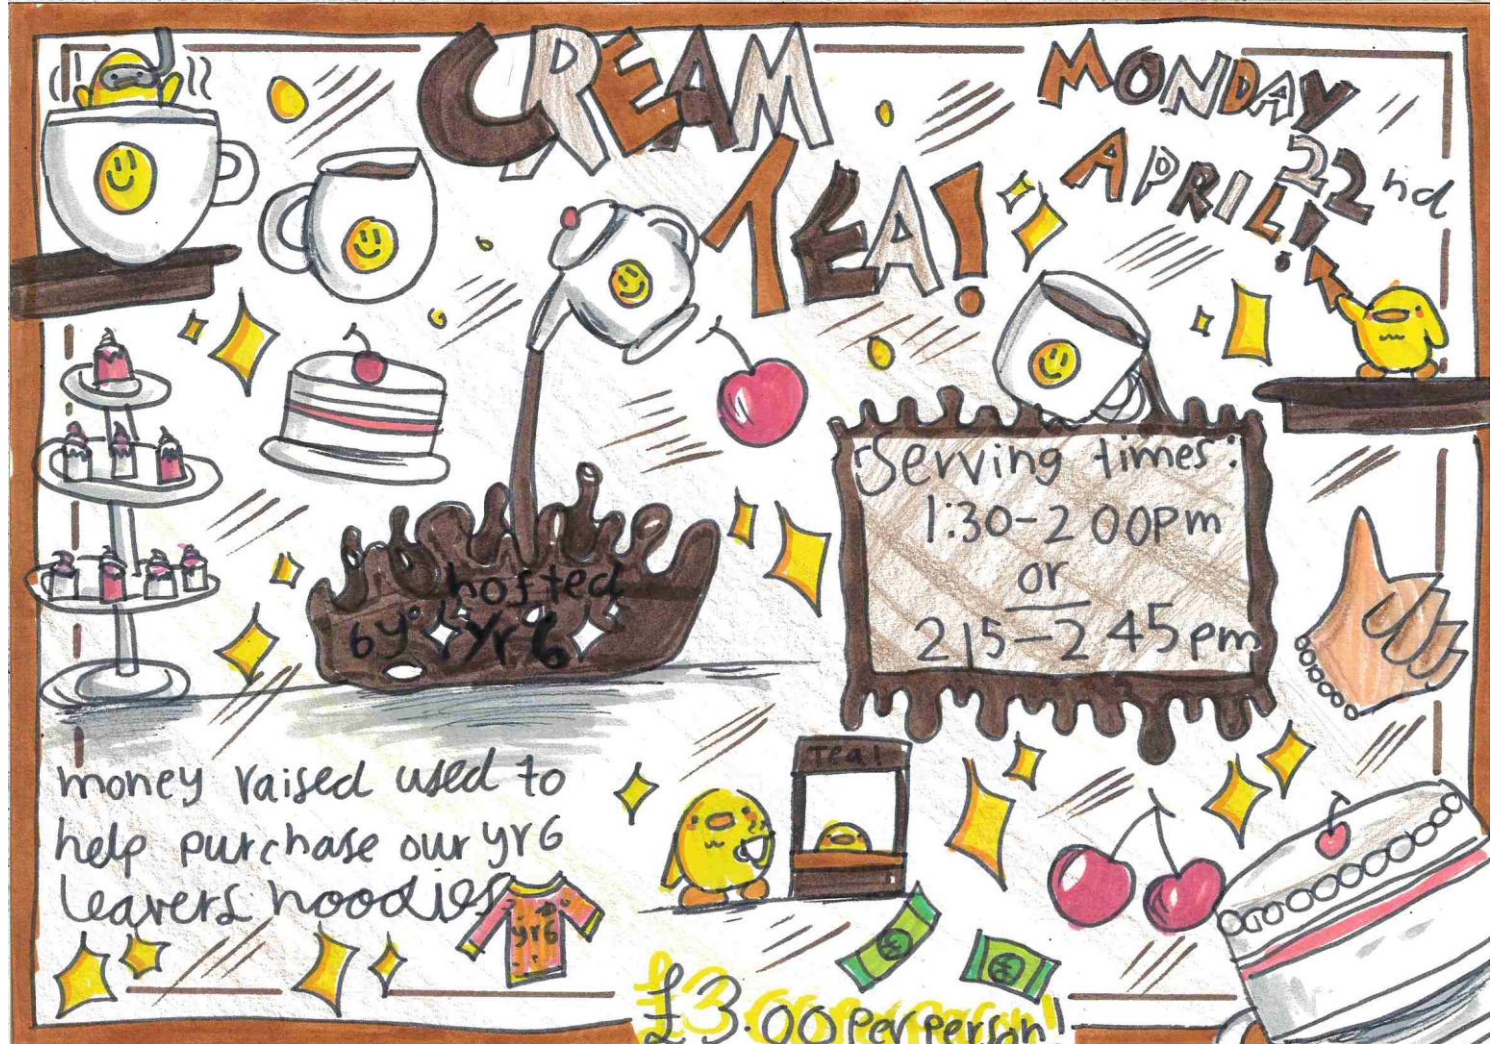 CREAM
TEA!
MONDAY
APRIL 22nd!
Serving times:
1:30-2 00pm
or
2 15-2 45pm
hosted
by yr6
money raised used to
help purchase our yr6
leavers hoodies
yr6
Tea!
£3.00 per person!